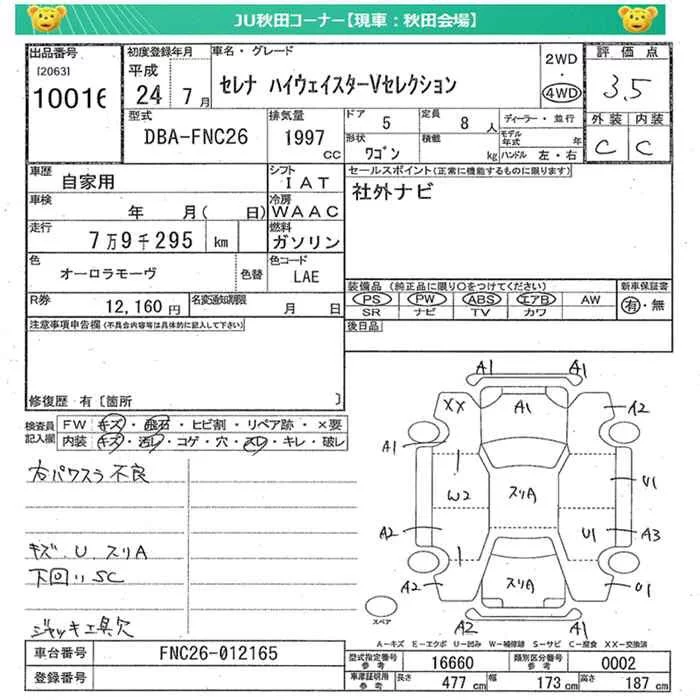 JU秋田コーナー【現車：秋田会場】
出品番号
[2063]
10016
初度登録年月
平成
24 7 月
車名・グレード
セレナ ハイウェイスターVセレクション
2WD
・
4WD
評価点
3.5
外装 内装
C C
型式
DBA-FNC26
排気量
1997
CC
ドア
5
定員
8 人
形状
ワゴン
積載
kg
ディーラー・並行
モデル年式 年
ハンドル 左・右
車歴
自家用
シフト
IAT
車検
年 月( 日)
冷房
WAAC
走行
7万9千295 km
燃料
ガソリン
色
オーロラモーヴ
色替
色コード
LAE
R券
12,160 円
名変通知期限
月 日
セールスポイント(正常に機能するものに限ります)
社外ナビ
装備品 (純正品に限り○をつけてください)
PS PW ABS エアB AW
SR ナビ TV カワ
新車保証書
有・無
後日品
注意事項申告欄(不具合内容等は具体的に記入して下さい)
修復歴 有 [箇所 ]
検査員
記入欄
FW キズ・飛石・ヒビ割・リペア跡・×要
内装 キズ・汚レ・コゲ・穴・スレ・キレ・破レ
右パワスラ不良
キズ、U スリA
下回リSC
ジャッキ工具欠
A1 A1
XX A1 A2
A1
U1
W2 スリA
A2 U1 A3
A2 スリA U1
A2 A1
スペア
A-キズ E-エクボ U-凹み W-補修跡 S-サビ C-腐食 XX-交換済
車台番号
FNC26-012165
登録番号
型式指定番号
参考
16660
類別区分番号
参考
0002
車庫証明用
参考
長さ
477 cm
幅
173 cm
高さ
187 cm